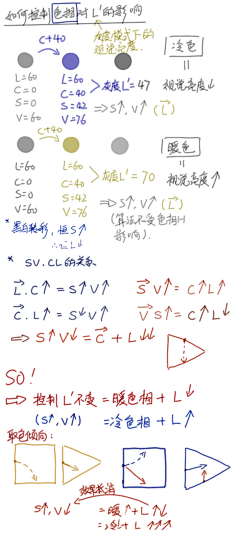 如何控制色相对L'的影响
C+40
灰度模式下的
视觉亮度.
冷色
L=60 L=60
C=0 C=40
S=0 S=42
V=60 V=76
>灰度L'=47
⇒S↑, V↑ (L)
视觉亮度↓
C+40
暖色
L=60 L=60
C=0 C=40
S=0 S=42
V=60 V=76
>灰度L'=70
⇒S↑, V↑ (L)
(算法不受色相H
影响).
视觉亮度↑
* 黑白转彩, 但S↑
∴L↓
* SV.CL的关系
L.C↑=S↑V↑
S V↑=C↑L↑
C.L↑=S↓V↑
V S↑=C↑L↓
⇒S↑V↓=C+L↓↓
SO!
⇒控制L'不变=暖色相+L↓
(S↑,V↑) =冷色相+L↑
取色倾向:
效果相当
S↑, V↓
=暖↑+L↑↓
=冷+L↑↑↑